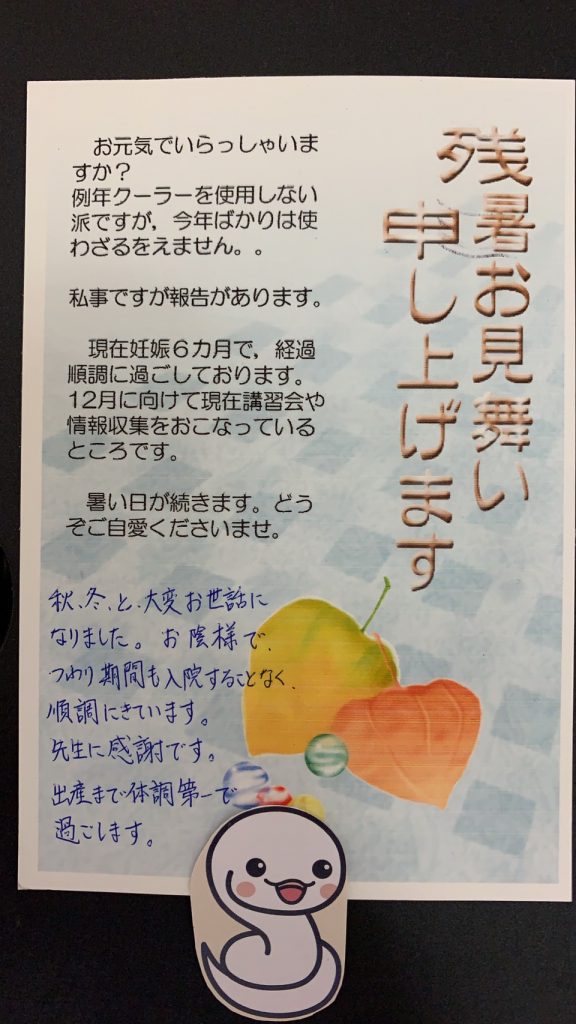 残暑お見舞い
申し上げます
お元気でいらっしゃいま
すか？
例年クーラーを使用しない
派ですが，今年ばかりは使
わざるをえません。。
私事ですが報告があります。
現在妊娠６カ月で，経過
順調に過ごしております。
12月に向けて現在講習会や
情報収集をおこなっている
ところです。
暑い日が続きます。どう
ぞご自愛くださいませ。
秋、冬、と、大変お世話に
なりました。お陰様で、
つわり期間も入院することなく、
順調にきています。
先生に感謝です。
出産まで体調第一で
過ごします。